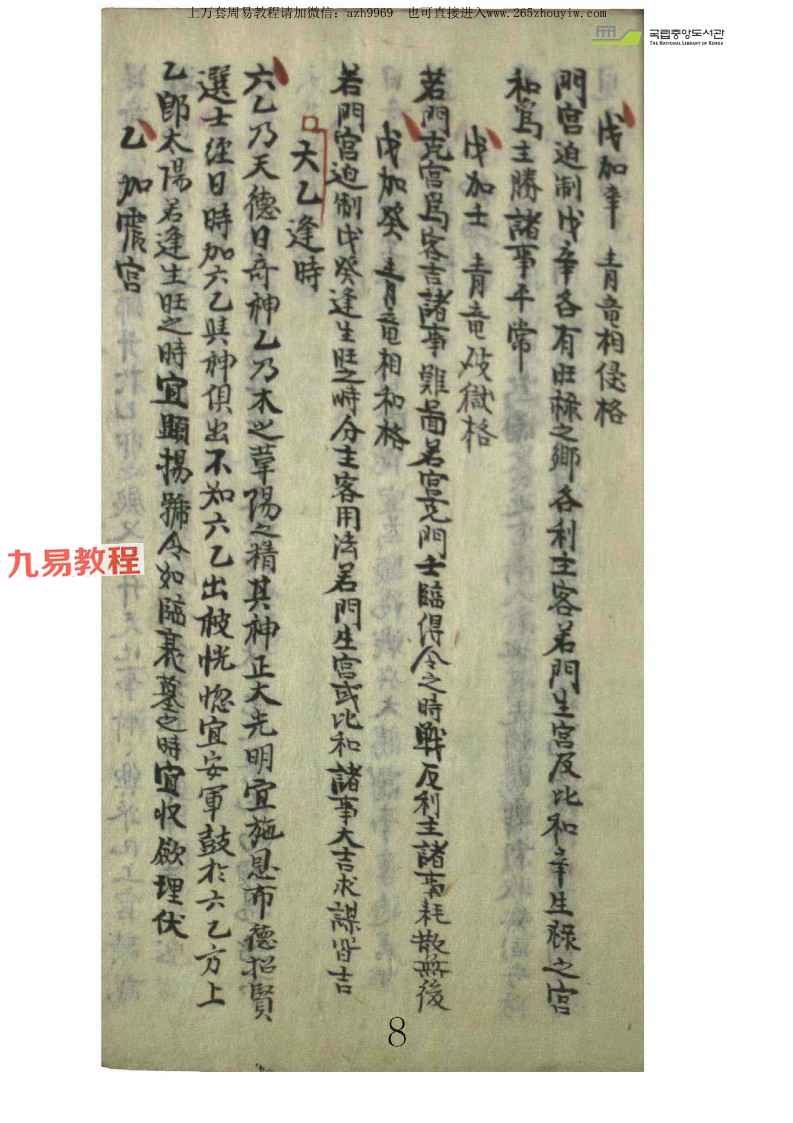 上万套周易教程请加微信：azh9969 也可直接进入www.265zhouyiw.com
국립중앙도서관
THE NATIONAL LIBRARY OF KOREA
戊加辛 青竜相侵格
門宮迫制戊辛各有旺祿之鄉各利主客若門生宮反比和辛生祿之宮
和爲主勝諸事平常
戊加壬 青竜 獄格
若門克宮爲客吉諸事難啚若宮克門壬臨得令之時戰反利主諸事耗散無後
戊加癸 青竜相和格
若門宮迫制戊癸逢生旺之時分主客用法若門生宮或比和諸事大吉求謀皆吉
六乙逢時
六乙乃天德日奇神乙乃木之草陽之精其神正大光明宜施恩布德招賢
選士經日時加六乙與神俱出不知六乙出被恍惚宜安軍鼓於六乙方上
乙郎太陽若逢生旺之時宜顯揚號令如臨衰墓之時宜收歛埋伏
乙加震宮
九易教程
8